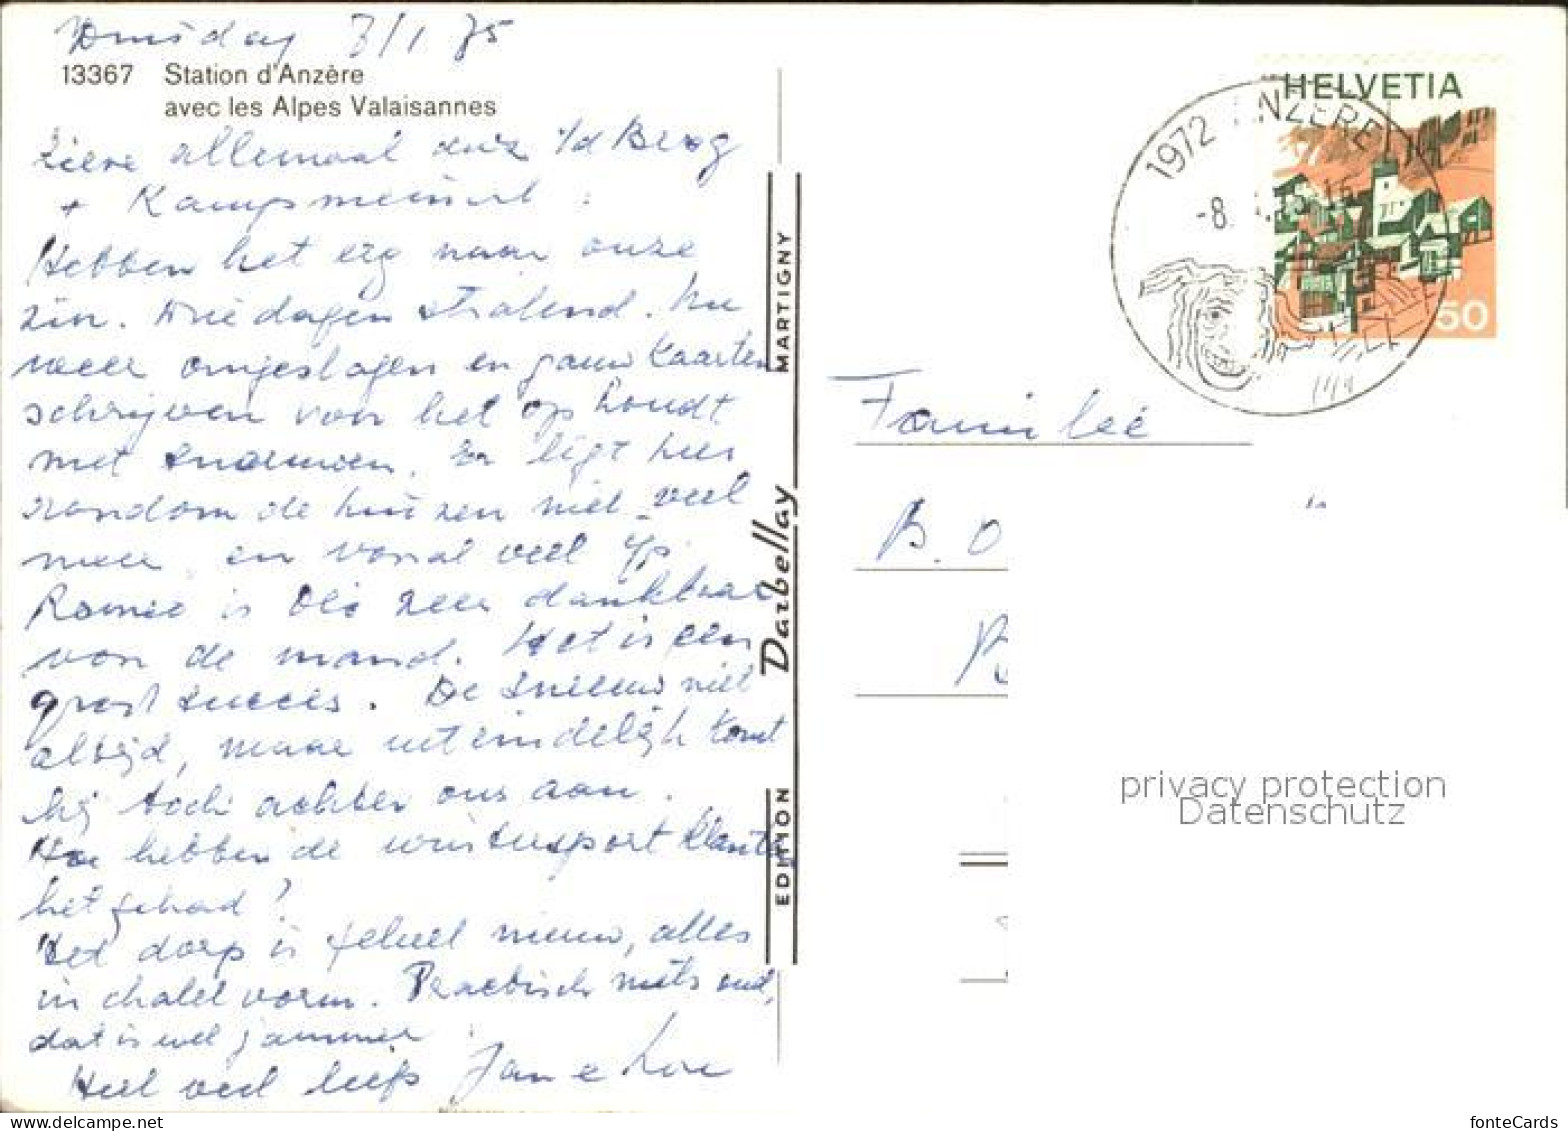 Dinsdag 7/1 75
13367 Station d'Anzère
avec les Alpes Valaisannes
Lieve allemaal deiz i/d Berg
+ Kampsmeinsel :
Hebben het erg naar onze
zin. Drie dagen stralend. Nu
weer omgeslagen en gauw kaarten
schrijven voor het op houdt
met sneeuwen. Er ligt hier
rondom de huizen niet veel
meer en vooral veel ijs
Romeo is Olé zeer dankbaar
voor de mand. Het is een
groot succes. De sneeuw niet
altijd, maar uiteindelijk komt
hij toch achter ons aan.
Hoe hebben de wintersport klanten
het gehad?
Het dorp is geheel nieuw, alles
in chalet vorm. Practisch niets oud,
dat is wel jammer
Heel veel liefs Jan e Loe
EDITION Darbellay MARTIGNY
HELVETIA
50
1972 ANZÈRE
-8.
Familie
B. O
privacy protection
Datenschutz
fonteCards